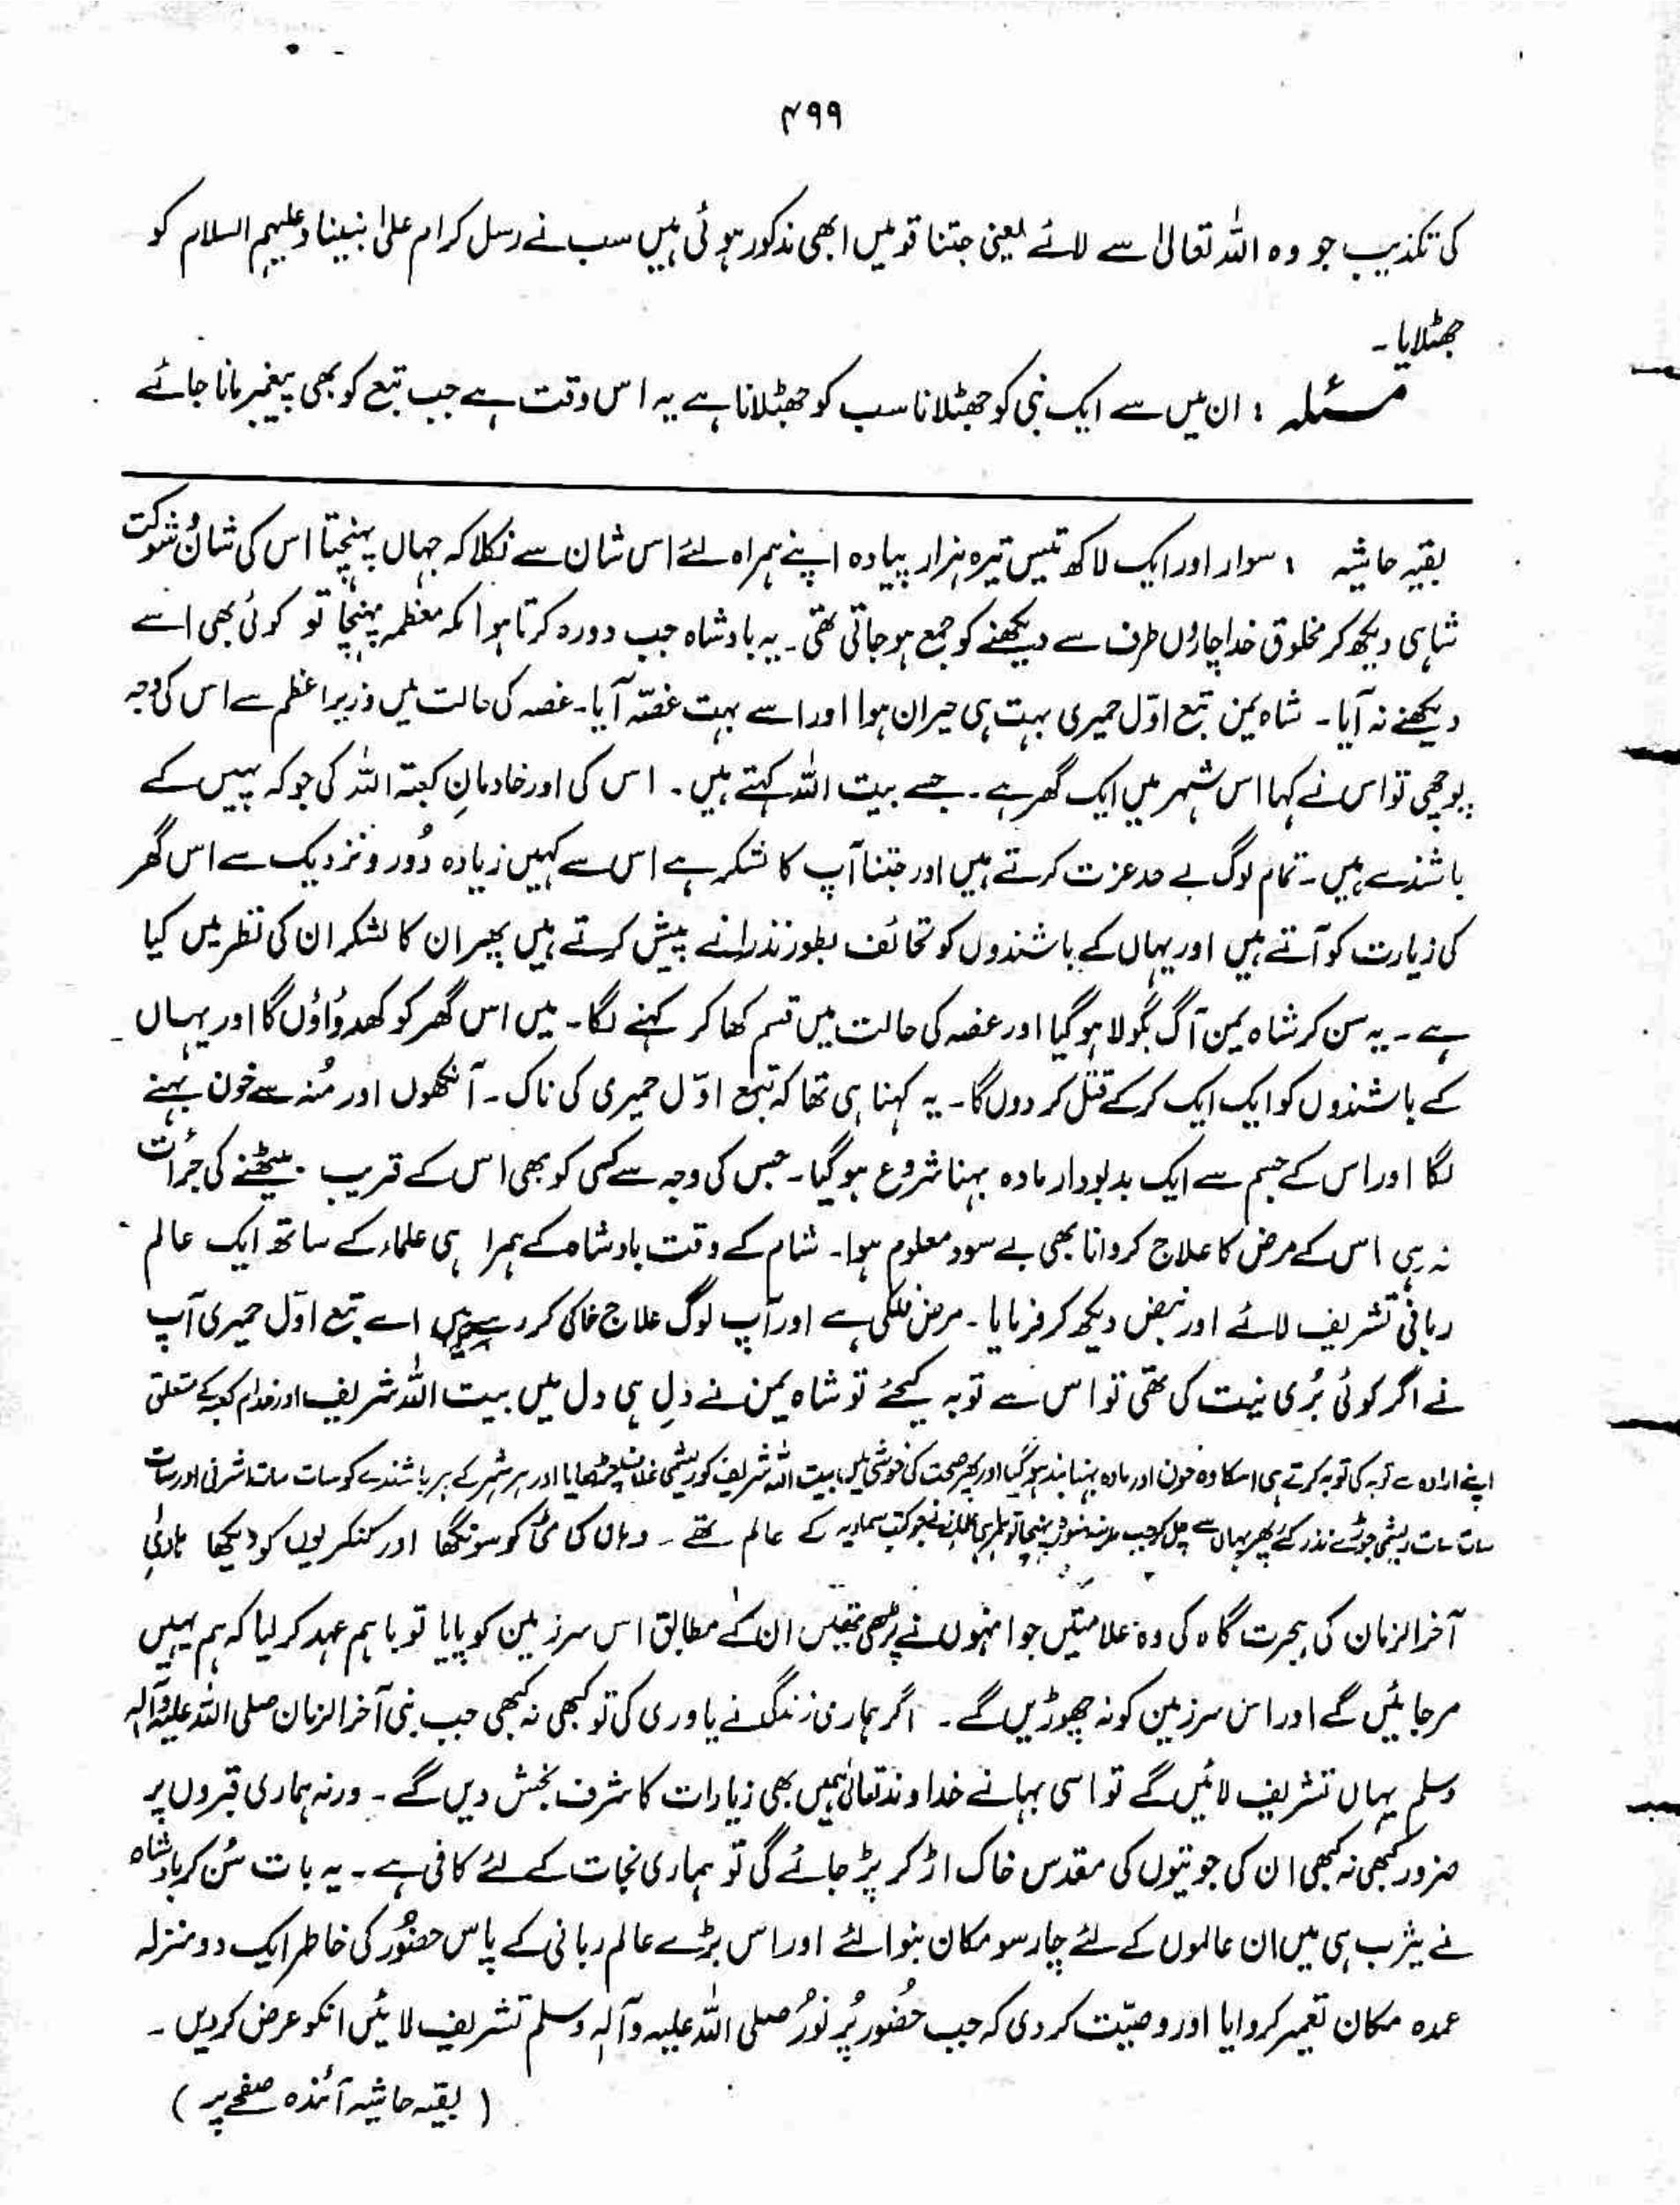 ۴۹۹
کی تکذیب جو وہ اللہ تعالیٰ سے لائے یعنی جتنا قومیں ابھی مذکور ہوئی ہیں سب نے رسل کرام علیٰ نبینا وعلیہم السلام کو
جھٹلایا۔
مسئلہ : ان میں سے ایک نبی کو جھٹلانا سب کو جھٹلانا ہے یہ اس وقت ہے جب تبع کو بھی پیغمبر مانا جائے
بقیہ حاشیہ : سوار اور ایک لاکھ تیس تیرہ ہزار پیادہ اپنے ہمراہ لئے اس شان سے نکلا کہ جہاں پہنچتا اس کی شان و شوکت
شاہی دیکھ کر مخلوق خدا چاروں طرف سے دیکھنے کو جمع ہو جاتی تھی۔ یہ بادشاہ جب دورہ کرتا ہوا مکہ معظمہ پہنچا تو کوئی بھی اسے
دیکھنے نہ آیا۔ شاہ یمن تبع اوّل حمیری بہت ہی حیران ہوا اور اسے بہت غصّہ آیا۔ غصہ کی حالت میں وزیر اعظم سے اس کی وجہ
پوچھی تو اس نے کہا اس شہر میں ایک گھر ہے۔ جسے بیت اللہ کہتے ہیں۔ اس کی اور خادمانِ کعبتہ اللہ کی جو کہ یہیں کے
باشندے ہیں۔ تمام لوگ بے حد عزت کرتے ہیں اور جتنا آپ کا لشکر ہے اس سے کہیں زیادہ دُور و نزدیک سے اس گھر
کی زیارت کو آتے ہیں اور یہاں کے باشندوں کو تحائف بطور نذرانے پیش کرتے ہیں پھر ان کا لشکر ان کی نظر میں کیا
ہے۔ یہ سن کر شاہ یمن آگ بگولا ہو گیا اور غصہ کی حالت میں قسم کھا کر کہنے لگا۔ میں اس گھر کو کھدواؤں گا اور یہاں
کے باشندوں کو ایک ایک کر کے قتل کر دوں گا۔ یہ کہنا ہی تھا کہ تبع اوّل حمیری کی ناک۔ آنکھوں اور مُنہ سے خون بہنے
لگا اور اس کے جسم سے ایک بدبودار مادہ بہنا شروع ہو گیا۔ جس کی وجہ سے کسی کو بھی اس کے قریب بیٹھنے کی جرأت
نہ رہی اس کے مرض کا علاج کروانا بھی بے سود معلوم ہوا۔ شام کے وقت بادشاہ کے ہمرا ہی علماء کے ساتھ ایک عالم
ربانی تشریف لائے اور نبض دیکھ کر فرمایا۔ مرض فلکی ہے اور آپ لوگ علاج خاکی کر رہے ہیں اے تبع اوّل حمیری آپ
نے اگر کوئی بُری نیت کی تھی تو اس سے توبہ کیجئے تو شاہ یمن نے دِل ہی دل میں بیت اللہ شریف اور خدام کعبہ کے متعلق
اپنے ارادہ سے توبہ کی توبہ کرتے ہی اسکا وہ خون اور مادہ بہنا بند ہو گیا اور پھر صحت کی خوشی میں بیت اللہ شریف کو ریشمی غلاف چڑھایا اور ہر شہر کے ہر باشندے کو سات سات اشرفی اور سات
سات سات ریشمی جوڑے نذر کئے پھر یہاں سے چل کر جب مدینہ منورہ پہنچا تو ہمراہی علماء نے جو کتب سماویہ کے عالم تھے۔ وہاں کی مٹی کو سونگھا اور کنکریوں کو دیکھا
آخر الزمان کی ہجرت گاہ کی وہ علامتیں جو انہوں نے پڑھی تھیں ان کے مطابق اس سرزمین کو پایا تو باہم عہد کر لیا کہ ہم یہیں
مر جائیں گے اور اس سرزمین کو نہ چھوڑیں گے۔ اگر ہماری زندگی نے یاوری کی تو کبھی نہ کبھی جب نبی آخر الزمان صلی اللہ علیہ وآلہ
وسلم یہاں تشریف لائیں گے تو اسی بہانے خداوند تعالیٰ ہمیں بھی زیارات کا شرف بخش دیں گے۔ ورنہ ہماری قبروں پر
ضرور کبھی نہ کبھی ان کی جوتیوں کی مقدس خاک اڑ کر پڑ جائے گی تو ہماری نجات کے لئے کافی ہے۔ یہ بات سُن کر بادشاہ
نے یثرب ہی میں ان عالموں کے لئے چار سو مکان بنوائے اور اس بڑے عالم ربانی کے پاس حضُور کی خاطر ایک دو منزلہ
عمدہ مکان تعمیر کروایا اور وصیّت کر دی کہ جب حضُور پُر نورُ صلی اللہ علیہ وآلہ وسلم تشریف لائیں انکو عرض کردیں۔
( بقیہ حاشیہ آئندہ صفحے پر )